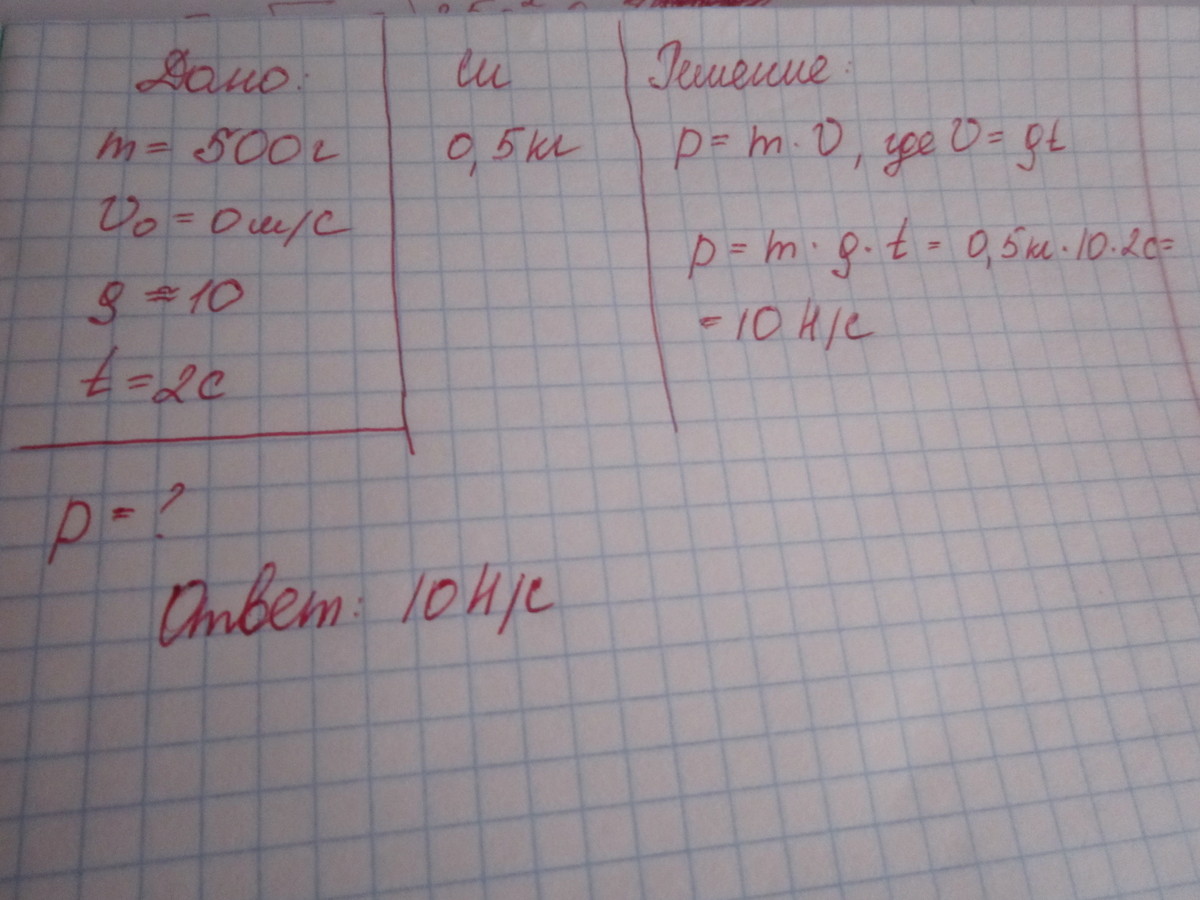 Дано:
m = 500г
υ₀ = 0 м/с
g ≈ 10
t = 2с
p = ?
СИ
0,5 кг
Решение:
p = m · υ, где υ = gt
p = m · g · t = 0,5кг · 10 · 2с =
= 10 Н/с
Ответ: 10 Н/с